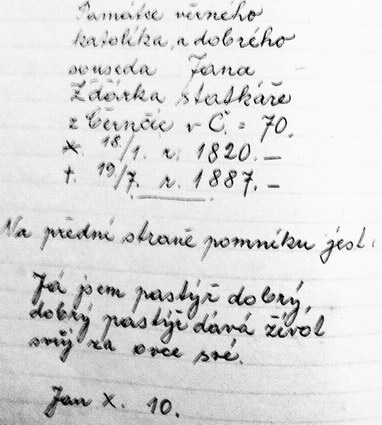 Památce věrného
katolíka, a dobrého
souseda Jana
Žďárka statkáře
z Černčic v Č. = 70.
*. 18/1. r. 1820. –
†. 19/7. r. 1887. –
Na přední straně pomníku jest:
Já jsem pastýř dobrý,
dobrý pastýř dává život
svůj za ovce své.
Jan X. 10.